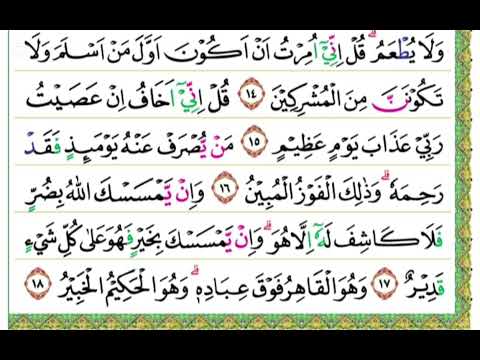 وَلَا يُطْعَمُ ۗ قُلْ اِنِّيْٓ اُمِرْتُ اَنْ اَكُوْنَ اَوَّلَ مَنْ اَسْلَمَ وَلَا
تَكُوْنَنَّ مِنَ الْمُشْرِكِيْنَ ١٤ قُلْ اِنِّيْٓ اَخَافُ اِنْ عَصَيْتُ
رَبِّيْ عَذَابَ يَوْمٍ عَظِيْمٍ ١٥ مَنْ يُّصْرَفْ عَنْهُ يَوْمَىِٕذٍ فَقَدْ
رَحِمَهٗ ۗ وَذٰلِكَ الْفَوْزُ الْمُبِيْنُ ١٦ وَاِنْ يَّمْسَسْكَ اللّٰهُ بِضُرٍّ
فَلَا كَاشِفَ لَهٗٓ اِلَّا هُوَ ۗ وَاِنْ يَّمْسَسْكَ بِخَيْرٍ فَهُوَ عَلٰى كُلِّ شَيْءٍ
قَدِيْرٌ ١٧ وَهُوَ الْقَاهِرُ فَوْقَ عِبَادِهٖ ۗ وَهُوَ الْحَكِيْمُ الْخَبِيْرُ ١٨